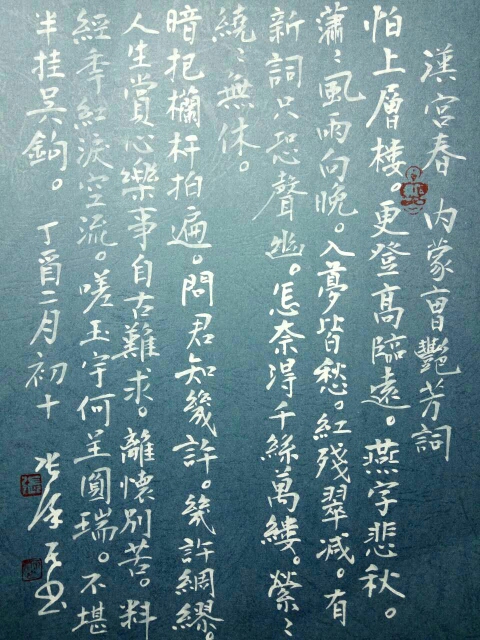 漢宮春 內蒙曹艷芳詞
怕上層樓。更登高臨遠。燕字悲秋。
蕭〻風雨向晚。入夢皆愁。紅殘翠減。有
新詞只恐聲幽。怎奈淂千絲萬縷。縈〻
繞〻無休。
暗把欄杆拍遍。問君知幾許。幾許綢繆。
人生賞心樂事自古難求。離懷別苦。料
經年紅淚空流。嗟玉宇何呈圓瑞。不堪
半挂吳鉤。丁酉二月初十